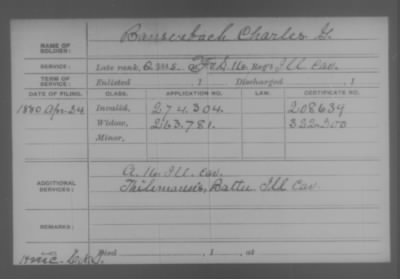 NAME OF SOLDIER: Bauserbach Charles G.
SERVICE: Late rank, Q.M.S. F & S. 16 Reg't Ill Cav.
TERM OF SERVICE: Enlisted , 1 Discharged , 1
DATE OF FILING. CLASS. APPLICATION NO. LAW. CERTIFICATE NO.
1880 Apr. 24 Invalid, 274.304. 208639
Widow, 263.781. 322.300
Minor,
ADDITIONAL SERVICES: A. 16 Ill. Cav.
Thilemann's, Battn Ill Cav.
REMARKS:
Died , 1 , at